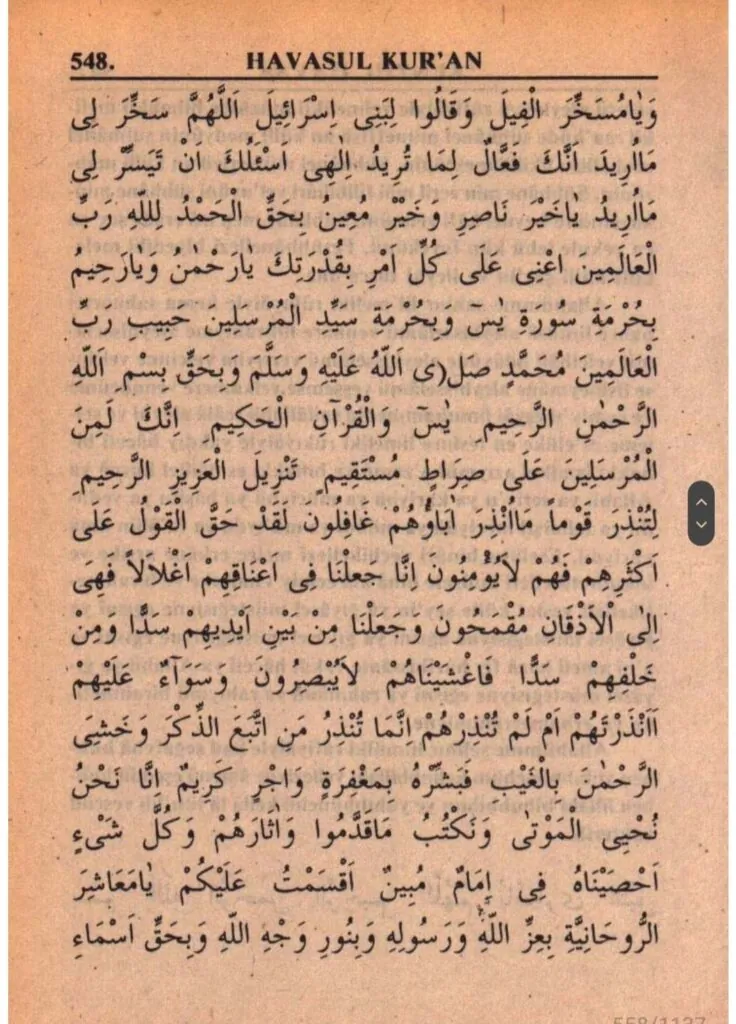 548. HAVASUL KUR'AN
وَيَامُسَخِّرَ الْفِيلَ وَقَالُوا لِبَنِى اِسْرَائِيلَ اَللّٰهُمَّ سَخِّرَ لِى
مَااُرِيدَ اَنَّكَ فَعَّالٌ لِمَا تُرِيدُ اِلٰهِى اَسْئَلُكَ اَنْ تَيَسِّرَّ لِى
مَااُرِيدُ يَاخَيْرَ نَاصِرٍ وَخَيْرَ مُعِينٌ بِحَقِّ الْحَمْدُ لِلّٰهِ رَبِّ
الْعَالَمِينَ اَعْنِى عَلَى كُلِّ اَمْرٍ بِقُدْرَتِكَ يَارَحْمٰنُ وَيَارَحِيمُ
بِحُرْمَةِ سُورَةِ يٰسَ وَبِحُرْمَةِ سَيِّدِ الْمُرْسَلِينَ حَبِيبِ رَبِّ
الْعَالَمِينَ مُحَمَّدٍ صَل(ى اَللّٰهُ عَلَيْهِ وَسَلَّمَ وَبِحَقِّ بِسْمِ اَللّٰهِ
الرَّحْمٰنِ الرَّحِيمِ يٰسَ وَالْقُرْآنِ الْحَكِيمِ اِنَّكَ لَمِنَ
الْمُرْسَلِينَ عَلَى صِرَاطٍ مُسْتَقِيمٍ تَنْزِيلَ الْعَزِيزِ الرَّحِيمِ
لِتُنْذِرَ قَوْماً مَااُنْذِرَ اٰبَاؤُهُمْ غَافِلُونَ لَقَدْ حَقَّ الْقَوْلُ عَلَى
اَكْثَرِهِمْ فَهُمْ لَايُؤْمِنُونَ اِنَّا جَعَلْنَا فِى اَعْنَاقِهِمْ اَغْلَالاً فَهِىَ
اِلٰى الْاَذْقَانِ مُقْمَحُونَ وَجَعَلْنَا مِنْ بَيْنِ اَيْدِيهِمْ سَدًّا وَمِنْ
خَلْفِهِمْ سَدًّا فَاَغْشَيْنَاهُمْ لَايُبْصِرُونَ وَسَوَآءٌ عَلَيْهِمْ
ءَاَنْذَرْتَهُمْ اَمْ لَمْ تُنْذِرْهُمْ اِنَّمَا تُنْذِرُ مَنِ اتَّبَعَ الذِّكْرَ وَخَشَىَ
الرَّحْمٰنَ بِالْغَيْبِ فَبَشِّرْهُ بِمَغْفِرَةٍ وَاَجْرٍ كَرِيمٌ اِنَّا نَحْنُ
نُحْيِى الْمَوْتٰى وَنَكْتُبُ مَاقَدَّمُوا وَاٰثَارَهُمْ وَكُلَّ شَىْءٍ
اَحْصَيْنَاهُ فِى اِمَامٌ مُبِينٌ اَقْسَمْتُ عَلَيْكُمْ يَامَعَاشِرَ
الرُّوحَانِيَّةِ بِعِزِّ اللّٰهِ وَرَسُولِهِ وَبِنُورِ وَجْهِ اللّٰهِ وَبِحَقِّ اَسْمَاءِ